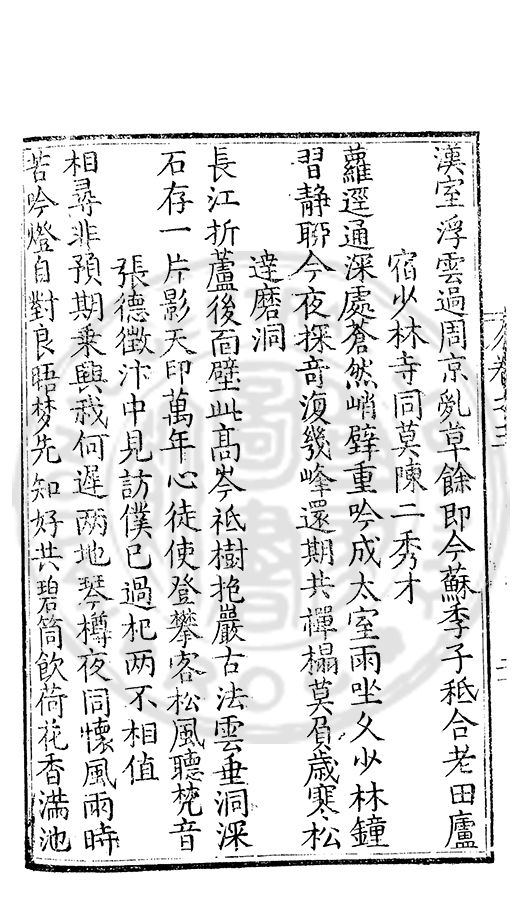 漢室浮雲過周京亂草餘即今蘇季子秪合老田廬
宿少林寺同莫陳二秀才
蘿逕通深處蒼然峭壁重吟成太室雨坐久少林鐘
習静聊今夜探竒復幾峰還期共禪榻莫負歲寒松
達磨洞
長江折蘆後面壁此髙岑祗樹抱巖古法雲垂洞深
石存一片影天印萬年心徒使登攀客松風聽梵音
張德徵汴中見訪僕已過杞两不相值
相尋非預期乗興我何遲两地琴樽夜同懷風雨時
苦吟燈自對良晤梦先知好共碧筒飲荷花香滿池